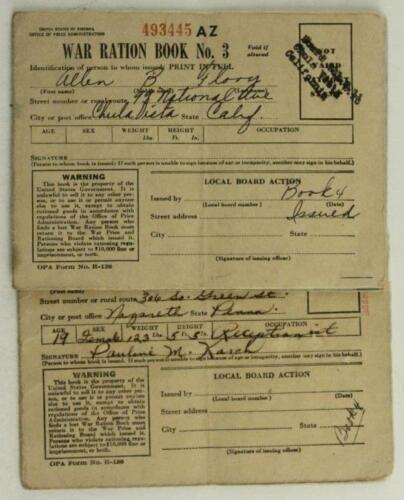 UNITED STATES OF AMERICA
OFFICE OF PRICE ADMINISTRATION
493445 AZ
WAR RATION BOOK No. 3
Void if altered
Identification of person to whom issued: PRINT IN FULL
Allen B
(First name)
Street number or rural route National Ave
City or post office Chula Vista State Calif.
NOT
California
AGE SEX WEIGHT HEIGHT OCCUPATION
Lbs. Ft. In.
SIGNATURE
(Person to whom book is issued. If such person is unable to sign because of age or incapacity, another may sign in his behalf.)
WARNING
This book is the property of the
United States Government. It is
unlawful to sell it to any other per-
son, or to use it or permit anyone
else to use it, except to obtain
rationed goods in accordance with
regulations of the Office of Price
Administration. Any person who
finds a lost War Ration Book must
return it to the War Price and
Rationing Board which issued it.
Persons who violate rationing regu-
lations are subject to $10,000 fine
or imprisonment, or both.
OPA Form No. R-130
LOCAL BOARD ACTION
Issued by Book 4
(Local board number) (Date)
Street address Issued
City State
(Signature of issuing officer)
Street number or rural route 306 So. Green St.
City or post office Nazareth State Penna.
AGE SEX WEIGHT HEIGHT OCCUPATION
19 Female 123 Lbs. 5 Ft. 5 In. Receptionist
SIGNATURE Pauline M.
(Person to whom book is issued. If such person is unable to sign because of age or incapacity, another may sign in his behalf.)
WARNING
This book is the property of the
United States Government. It is
unlawful to sell it to any other per-
son, or to use it or permit anyone
else to use it, except to obtain
rationed goods in accordance with
regulations of the Office of Price
Administration. Any person who
finds a lost War Ration Book must
return it to the War Price and
Rationing Board which issued it.
Persons who violate rationing regu-
lations are subject to $10,000 fine
or imprisonment, or both.
OPA Form No. R-130
LOCAL BOARD ACTION
Issued by
(Local board number) (Date)
Street address
City State
(Signature of issuing officer)